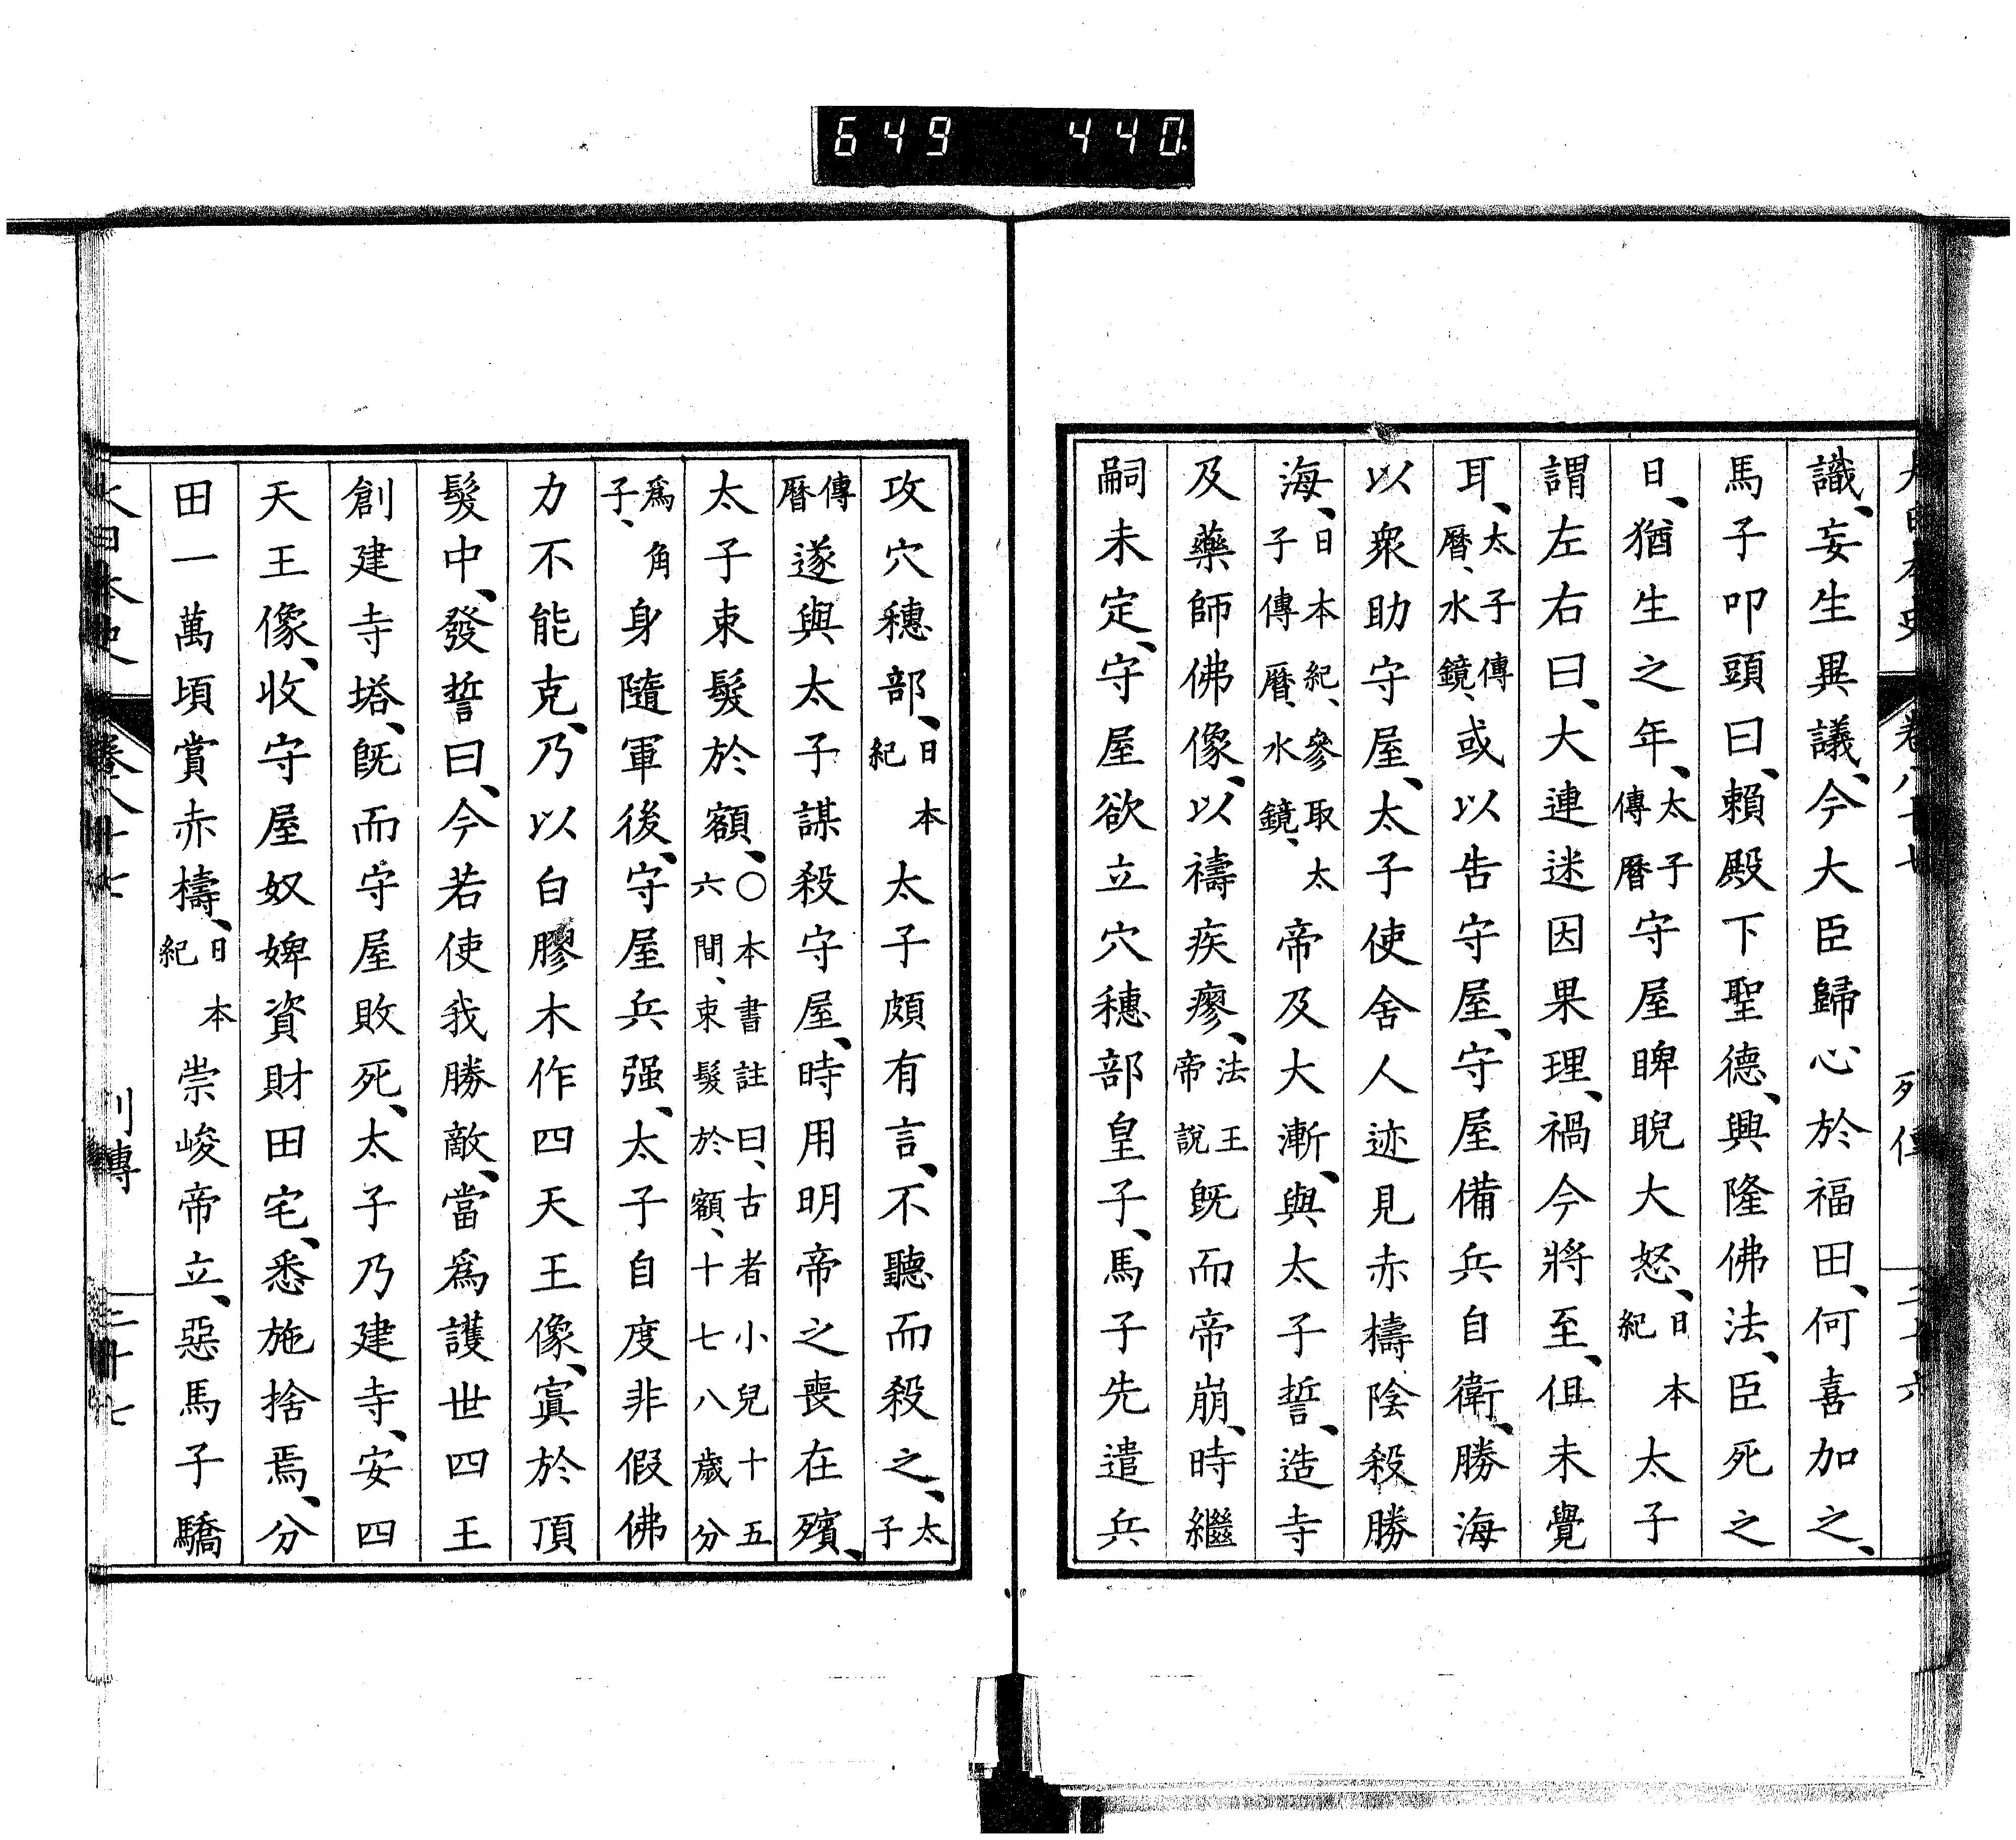 649 440
大日本史 卷八十七 列傳 二十六
識、妄生異議、今大臣歸心於福田、何喜加之、
馬子叩頭曰、賴殿下聖德、興隆佛法、臣死之
日、猶生之年、太子傳曆守屋睥睨大怒、日本紀太子
謂左右曰、大連迷因果理、禍今將至、但未覺
耳、太子傳曆、水鏡、或以告守屋、守屋備兵自衛、勝海
以衆助守屋、太子使舍人迹見赤檮陰殺勝
海、日本紀、參取太子傳曆、水鏡、帝及大漸、與太子誓、造寺
及藥師佛像、以禱疾瘳、法王帝說既而帝崩、時繼
嗣未定、守屋欲立穴穗部皇子、馬子先遣兵
攻穴穗部、日本紀太子頗有言、不聽而殺之、太子
傳曆遂與太子謀殺守屋、時用明帝之喪在殯、
太子束髮於額、〇本書註曰、古者小兒十五六間、束髮於額、十七八歲分
爲角子、身隨軍後、守屋兵强、太子自度非假佛
力不能克、乃以白膠木作四天王像、寘於頂
髮中、發誓曰、今若使我勝敵、當爲護世四王
創建寺塔、既而守屋敗死、太子乃建寺、安四
天王像、收守屋奴婢資財田宅、悉施捨焉、分
田一萬頃賞赤檮、日本紀崇峻帝立、惡馬子驕
大日本史 卷八十七 列傳 二十七